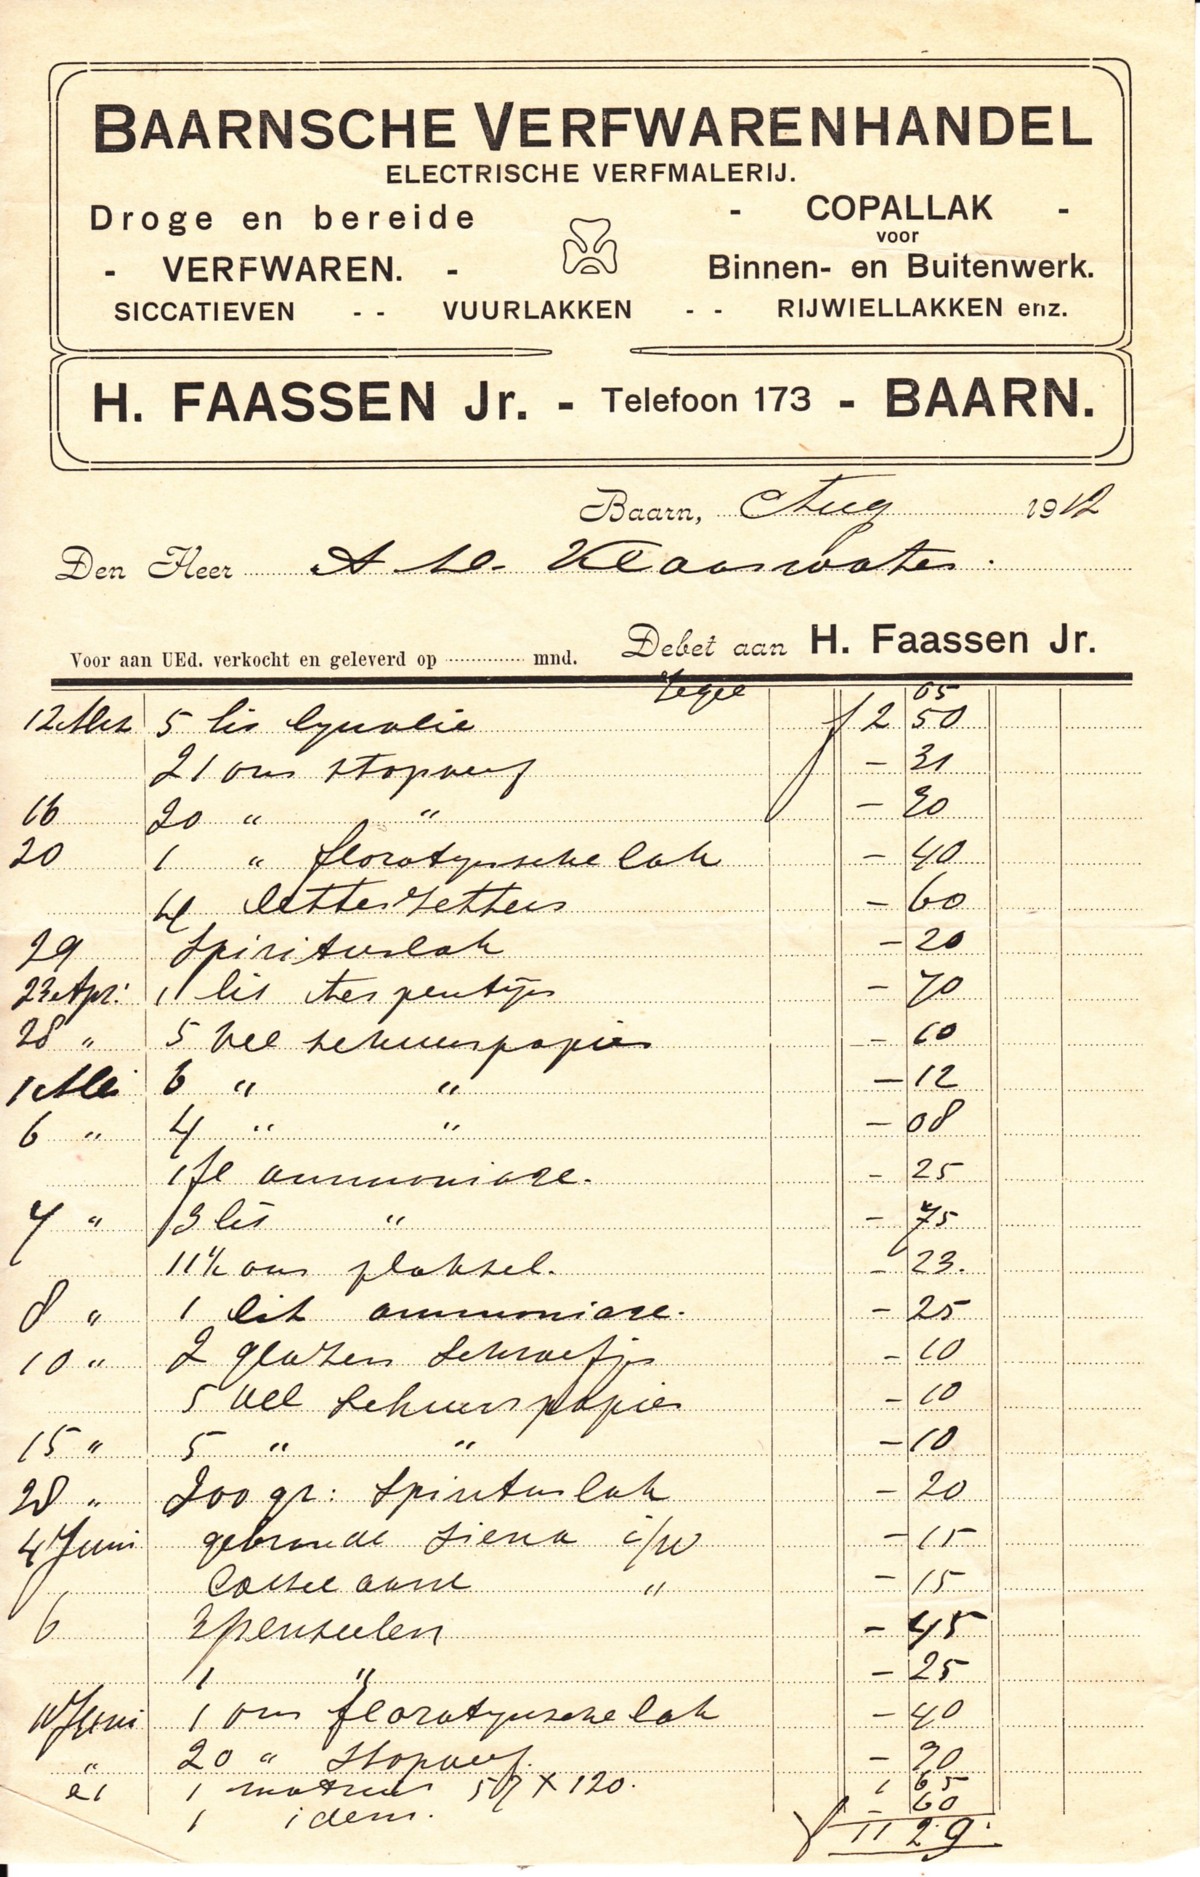 BAARNSCHE VERFWARENHANDEL
ELECTRISCHE VERFMALERIJ.
Droge en bereide
- VERFWAREN. -
- COPALLAK -
voor
Binnen- en Buitenwerk.
SICCATIEVEN - - VUURLAKKEN - - RIJWIELLAKKEN enz.
H. FAASSEN Jr. - Telefoon 173 - BAARN.
Baarn, Aug 1912
Den Heer A. Klaarwater.
Debet aan H. Faassen Jr.
Voor aan UEd. verkocht en geleverd op mnd.
05
12 Mrt 5 lit f 2 50
21 ons stopverf - 31
16 20 " " - 30
20 1 " lak - 40
letterzetters - 60
29 Spirituslak - 20
23 Apr: 1 lit terpentijn - 70
28 " 5 vel schuurpapier - 10
1 Mei 6 " " - 12
6 " 4 " " - 08
1 fl ammoniace. - 25
7 " 3 lit " - 75
11½ ons plaksel. - 23.
8 " 1 lit ammoniace. - 25
10 " 2 glazen schroefjes - 10
5 vel schuurpapier - 10
15 " 5 " " - 10
28 " 200 gr: Spirituslak - 20
4 Juni gebrande Siena i/w - 15
" - 15
6 3 penseelen - 45
1 " - 25
10 Juni 1 ons lak - 40
" 20 " Stopverf. - 30
21 1 57 X 120. 1 65
1 idem. - 60
f 11 29.